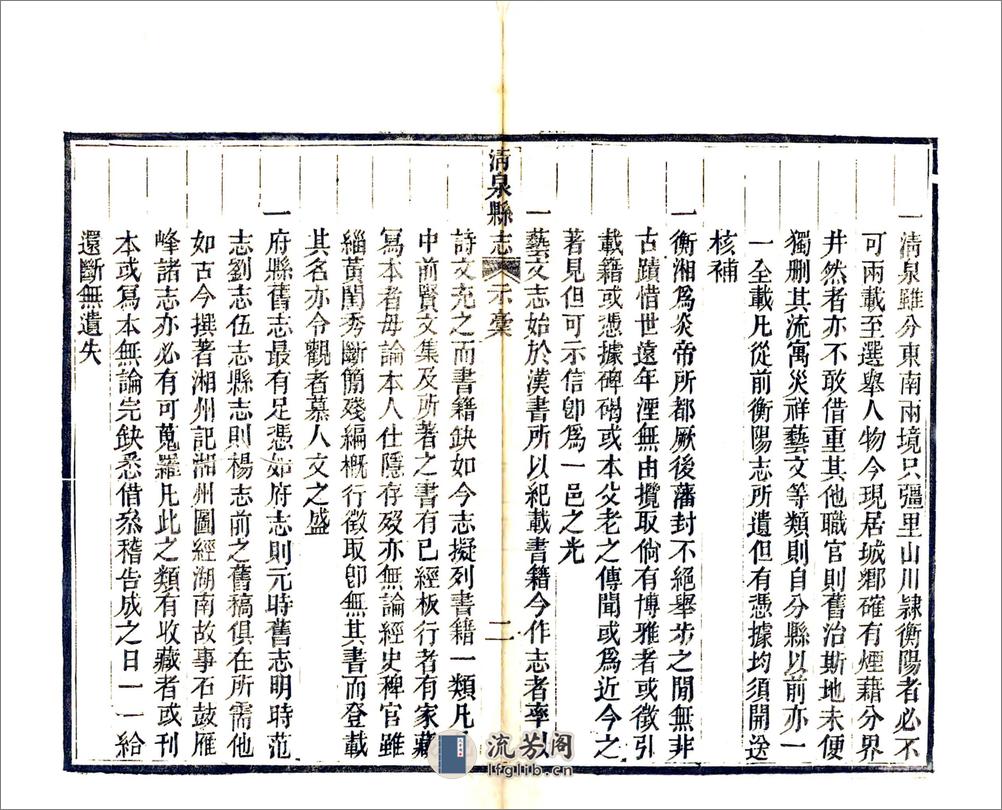 一淸泉雖分東南兩境只彊里山川隷衡陽者必不
可兩載至選舉人物今現居城鄉確有煙籍分界
井然者亦不敢借重其他職官則舊治斯地未便
獨刪其流寓災祥藝文等類則自分縣以前亦一
一全載凡從前衡陽志所遺但有憑據均須開送
核補
一衡湘爲炎帝所都厥後藩封不絕舉步之間無非
古蹟惜世遠年湮無由攬取倘有博雅者或徵引
載籍或憑據碑碣或本父老之傳聞或爲近今之
著見但可示信卽爲一邑之光
一藝文志始於漢書所以紀載書籍今作志者率以
淸泉縣志 示彙 二
詩文充之而書籍缺如今志擬列書籍一類凡
中前賢文集及所著之書有已經板行者有家藏
寫本者毋論本人仕隱存歿亦無論經史稗官雖
緇黃閨秀斷簡殘編槪行徵取卽無其書而登載
其名亦令觀者慕人文之盛
一府縣舊志最有足憑如府志則元時舊志明時范
志劉志伍志縣志則楊志前之舊稿俱在所需他
如古今撰著湘州記湘州圖經湖南故事石鼓雁
峰諸志亦必有可蒐羅凡此之類有收藏者或刊
本或寫本無論完缺悉借叅稽告成之日一一給
還斷無遺失
流芳阁
lfglib.cn